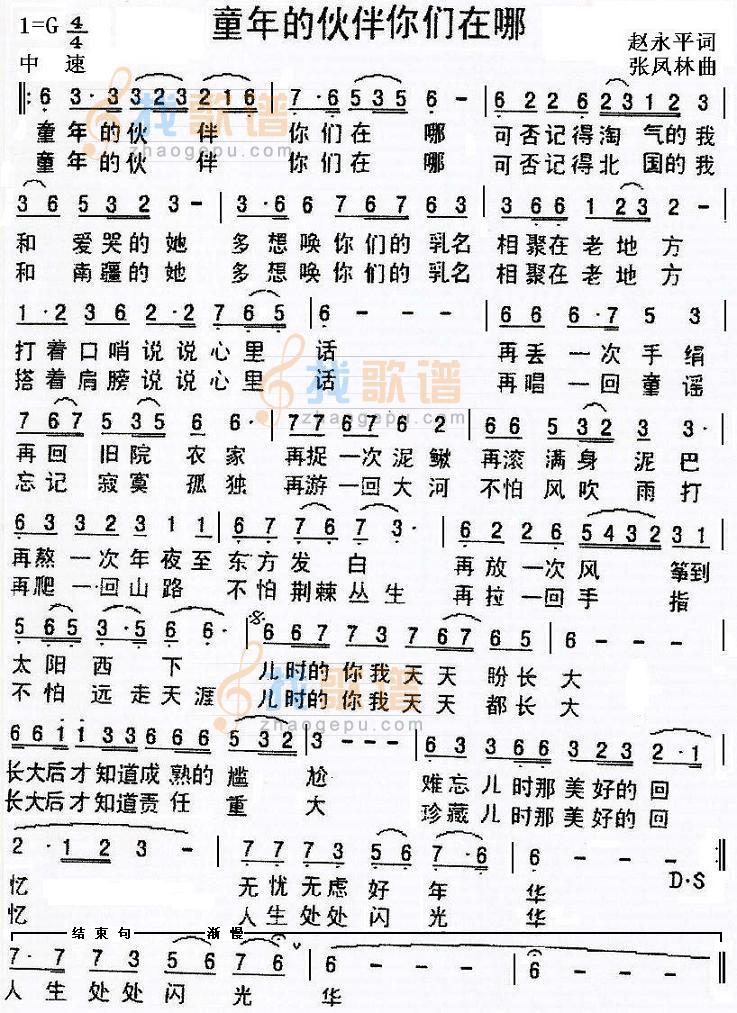 童年的伙伴你们在哪
1=G 4/4
中 速
赵永平词
张凤林曲
6 3·3 3 2 3 2 1 6 | 7·6 5 3 5 6 - | 6 2 2 6 2 3 1 2 3
童年的伙 伴 你们在 哪 可否记得淘 气的我
童年的伙 伴 你们在 哪 可否记得北 国的我
找歌谱
zhaogepu.com
3 6 5 3 2 3 - | 3·6 6 7 6 7 6 3 | 3 6 6 1 2 3 2 -
和 爱哭的她 多想唤你们的乳名 相聚在老地方
和 南疆的她 多想唤你们的乳名 相聚在老地方
1·2 3 6 2·2 7 6 5 | 6 - - | 6 6 6·7 5 3
打着口哨说说心里 话 再丢 一次手绢
搭着肩膀说说心里 话 再唱 一回童谣
找歌谱
zhaogepu.com
7 6 7 5 3 5 6 6· | 7 7 6 7 6 2 | 6 6 5 3 2 3 3·
再回 旧院 农家 再捉一次泥鳅 再滚 满身 泥巴
忘记 寂寞 孤独 再游一回大河 不怕 风吹 雨打
6 3 3 2 3 1 1 | 6 7 7 6 7 3· | 6 2 2 6 5 4 3 2 3 1
再熬一次年夜至 东方发 白 再放一次风 筝到
再爬一回山路 不怕荆棘丛生 再拉一回手 指
5 6 5 3·5 6 6· | 6 6 7 7 3 7 6 7 6 5 | 6 - - -
太阳 西 下 儿时的你我天天 盼长大
不怕 远走天涯 儿时的你我天天 都长大
找歌谱
zhaogepu.com
6 6 1 1 3 3 6 6 6 5 3 2 | 3 - - - | 6 3 3 6 6 3 2 3 2·1
长大后才知道成熟的 尴 尬 难忘儿时那美好的回
长大后才知道责任 重 大 珍藏儿时那美好的回
2·1 2 3 - | 7 7 7 3 5 6 7·6 | 6 - -
忆 无忧无虑好 年 华
忆 人生处处闪光 华
D·S
结束句 渐慢
7·7 7 3 5 6 7 6 | 6 - - - | 6 - - -
人 生 处处 闪 光 华